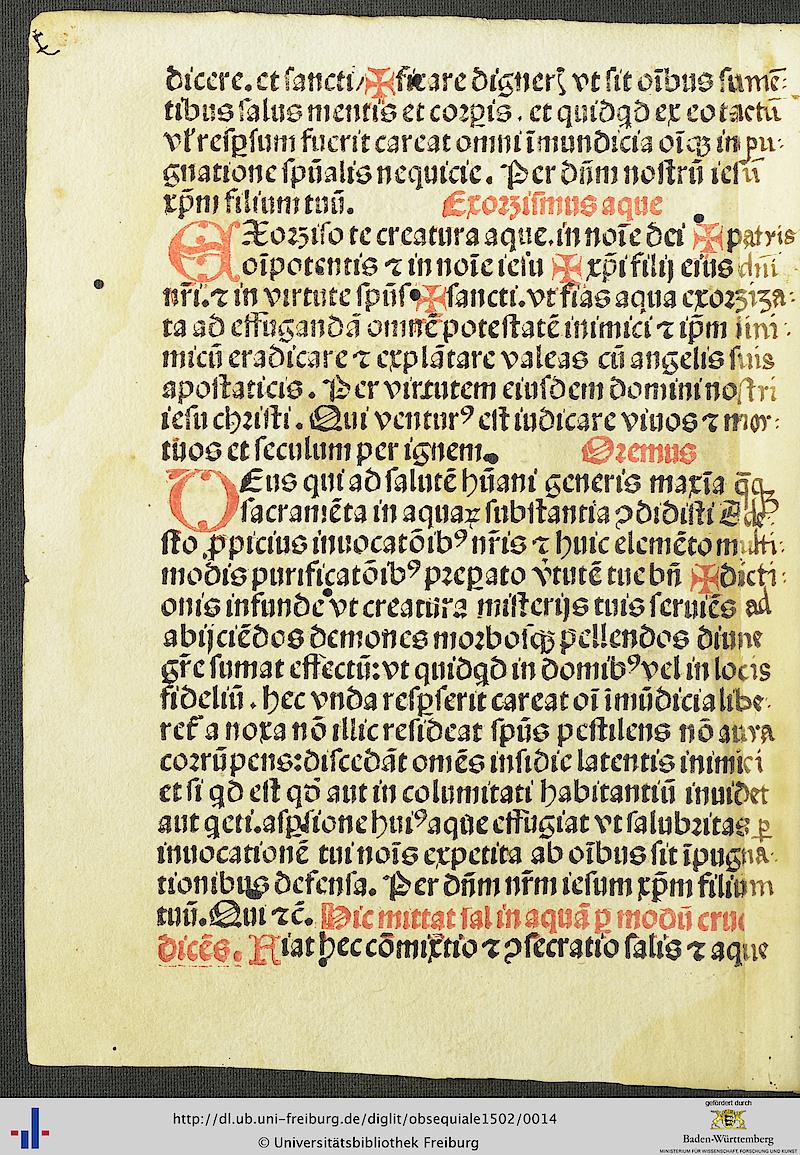 dicere. et sancti/✠ficare digneris vt sit oībus sumē⸗
tibus salus mentis et corꝑis. et quidqd ex eo tactū
vl̓ resꝑsum fuerit careat omni īmundicia oīqꝫ inpu⸗
gnatione spūalis nequicie. Per dūm nostrū iesū
xp̄m filium tuū. Exorzismus aque
EXorziso te creatura aque. in noīe dei ✠ patris
oīpotentis ⁊ in noīe iesu ✠ xp̄i filij eius dn̄i
nr̄i. ⁊ in virtute spūs ✠ sancti. vt fias aqua exorziza⸗
ta ad effugandā omnē potestatē inimici ⁊ ip̄m inni⸗
micū eradicare ⁊ explātare valeas cū angelis suis
apostaticis. Per virtutem eiusdem domini nostri
iesu christi. Qui venturꝰ est iudicare viuos ⁊ mor⸗
tuos et seculum per ignem. Oremus
DEus qui ad salutē hūani generis maxīa q̄qꝫ
sacramēta in aquaꝝ substantia ↄdidisti Ade⸗
sto ꝓpicius inuocatōibꝰ nr̄is ⁊ huic elemēto multi⸗
modis purificatōibꝰ preꝑato v̓tutē tue bn̄ ✠dicti⸗
onis infunde vt creatura misterijs tuis seruiēs ad
abijciēdos demones morbosqꝫ pellendos diune
gr̄e sumat effectū: vt quidqd in domibꝰ vel in locis
fideliū. hec vnda resꝑserit careat oī īmūdicia libe⸗
ret̓ a noxa nō illic resideat spūs pestilens nō aura
corrūpens: discedāt omēs insidie latentis inimici
et si qd est qd̓ aut in columitati habitantiū inuidet
aut qeti. asꝑsione huiꝰ aque effugiat vt salubritas ꝑ
inuocationē tui noīs expetita ab oībus sit īpugna⸗
tionibus defensa. Per dn̄m nr̄m iesum xp̄m filium
tuū. Qui ⁊c̄. Hic mittat sal in aquā ꝑ modū cruc
dicēs. Fiat hec cōmixtio ⁊ ↄsecratio salis ⁊ aque
http://dl.ub.uni-freiburg.de/diglit/obsequiale1502/0014
© Universitätsbibliothek Freiburg
gefördert durch
Baden-Württemberg
MINISTERIUM FÜR WISSENSCHAFT, FORSCHUNG UND KUNST